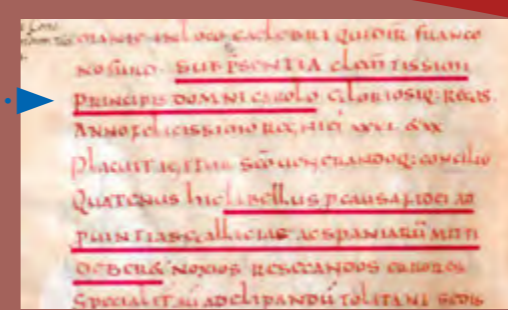 in loco caelebri quidir franco
nofurd. SUB PSENTIA clemtissimi
PRINCIPIS DOMNI CAROLO GLORIOSIQ: REGIS.
ANNO felicissimo
Placuit igitur sco uenerandoq: concilio
Quatenus hic libellus p causa fidei ad
puintias galliciae ac spaniarū mitti
deber& noxios resecandos errores
Specialit aū ad elipandū tolitani sedis